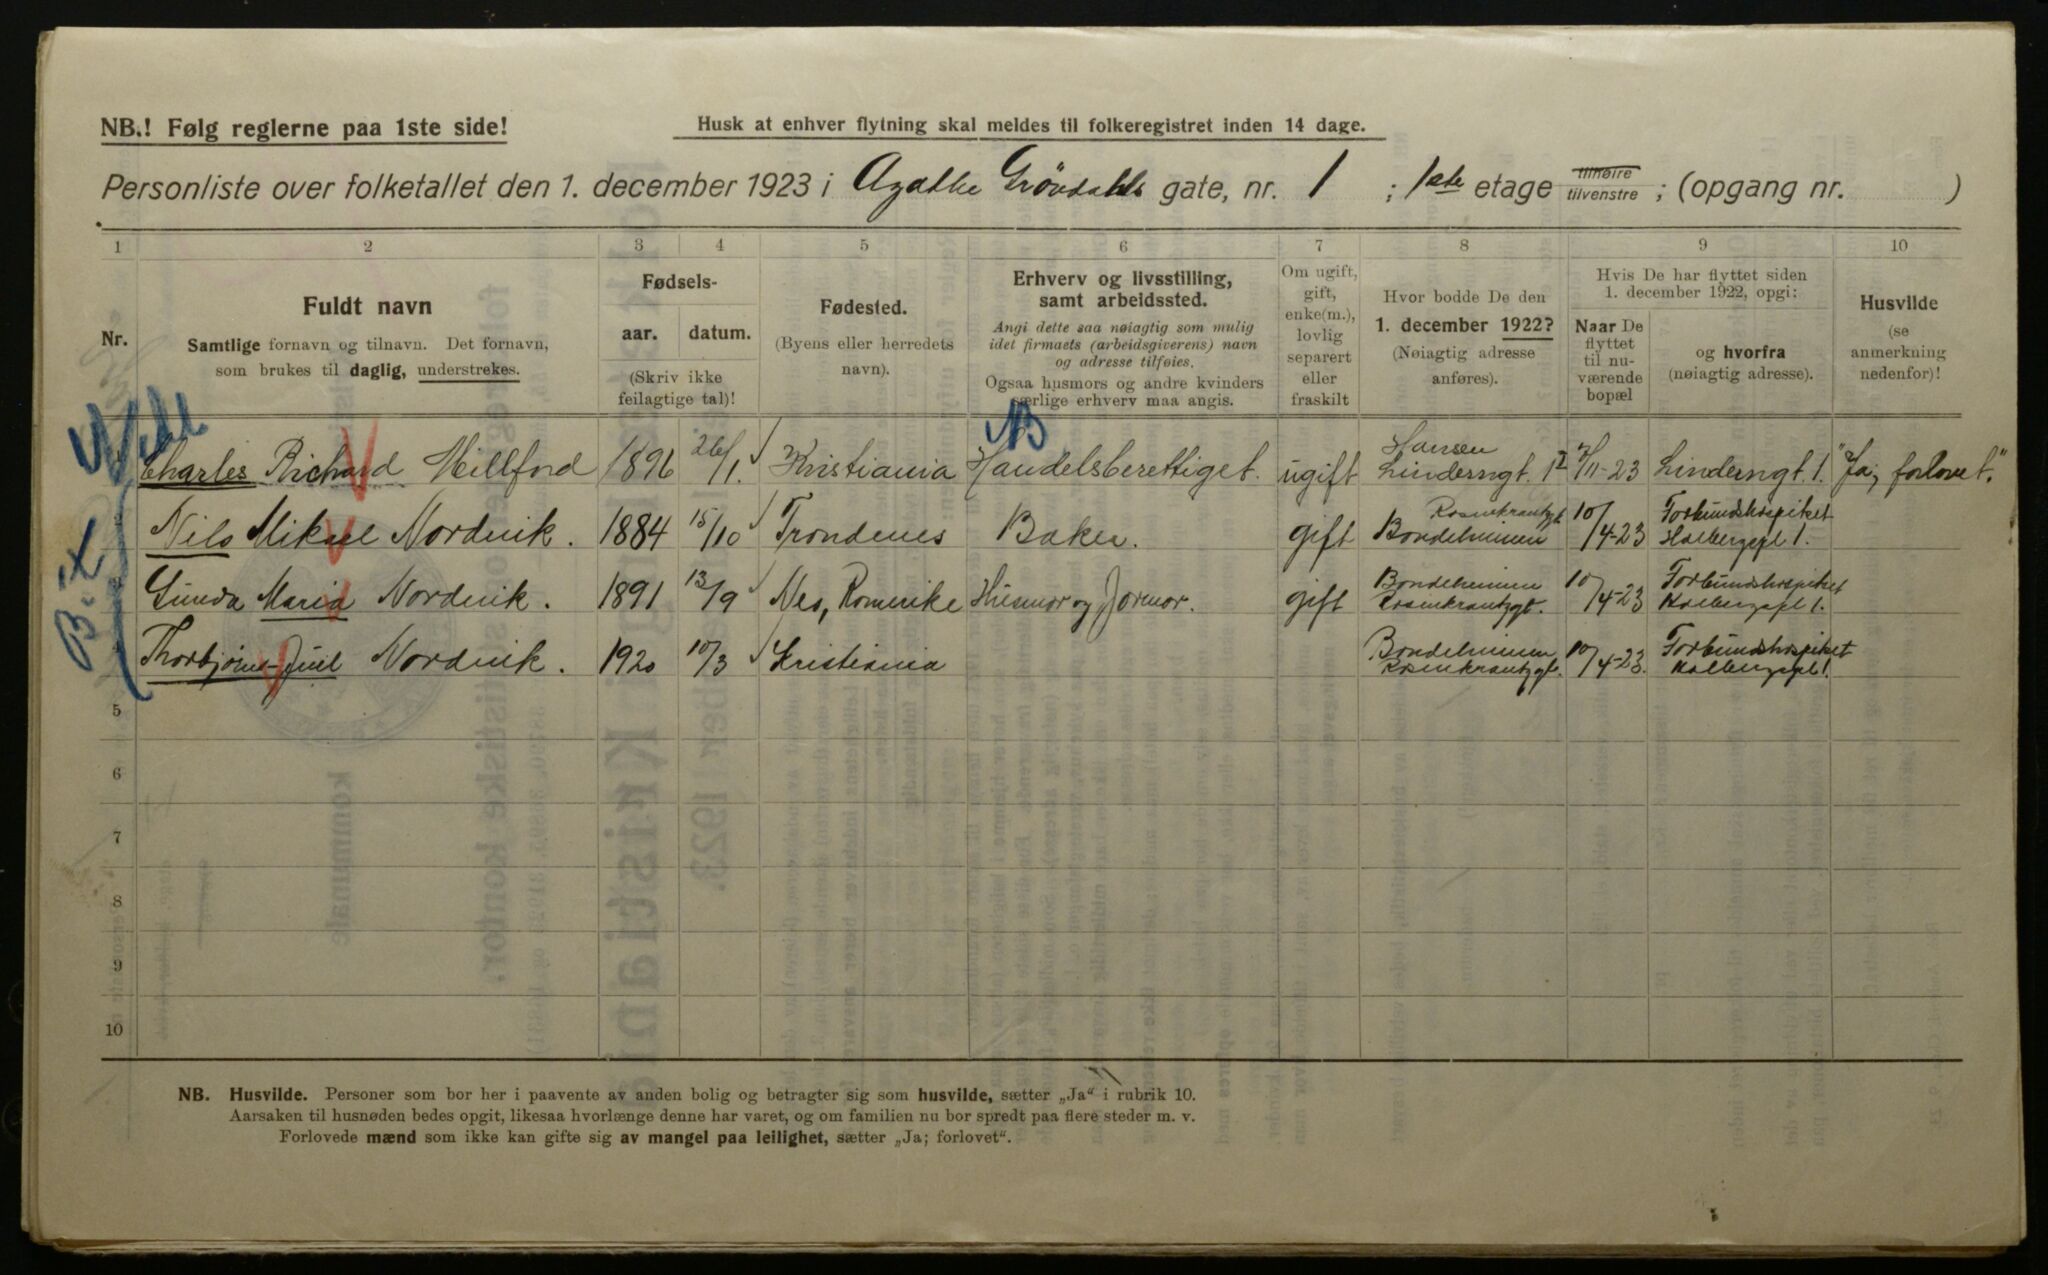 NB.! Følg reglerne paa 1ste side!
Husk at enhver flytning skal meldes til folkeregistret inden 14 dage.
Personliste over folketallet den 1. december 1923 i Agathe Grøndahls gate, nr. 1 ; 1ste etage tilhøire tilvenstre ; (opgang nr. )
1 2 3 4 5 6 7 8 9 10
Nr.
Fuldt navn
Samtlige fornavn og tilnavn. Det fornavn,
som brukes til daglig, understrekes.
Fødsels-
aar. datum.
(Skriv ikke
feilagtige tal)!
Fødested.
(Byens eller herredets
navn).
Erhverv og livsstilling,
samt arbeidssted.
Angi dette saa nøiagtig som mulig
idet firmaets (arbeidsgiverens) navn
og adresse tilføies.
Ogsaa husmors og andre kvinders
særlige erhverv maa angis.
Om ugift,
gift,
enke(m.),
lovlig
separert
eller
fraskilt
Hvor bodde De den
1. december 1922?
(Nøiagtig adresse
anføres).
Hvis De har flyttet siden
1. december 1922, opgi:
Naar De
flyttet
til nu-
værende
bopæl
og hvorfra
(nøiagtig adresse).
Husvilde
(se
anmerkning
nedenfor)!
Charles Richard Millford 1896 26/1 Kristiania Handelsberettiget. ugift Hansen Linderngt. 12 /11-23 Linderngt. 1. "Ja; forlovet."
Nils Mikael Nordvik. 1884 15/10 Trondenes Baker. gift Rosenkrantzgt. Bondeheimen 10/4-23 Forbundshospitset Holbergspl 1.
Gunda Maria Nordvik. 1891 13/9 Nes, Romerike Husmor og Jormor. gift Bondeheimen Rosenkrantzgt. 10/4-23 Forbundshospitset Holbergspl 1.
4 Thorbjørn-Juel Nordvik. 1920 10/3 Kristiania Bondeheimen Rosenkrantzgt. 10/4-23. Forbundshospitset Holbergspl 1.
5
6
7
8
9
10
NB. Husvilde. Personer som bor her i paavente av anden bolig og betragter sig som husvilde, sætter „Ja“ i rubrik 10.
Aarsaken til husnøden bedes opgit, likesaa hvorlænge denne har varet, og om familien nu bor spredt paa flere steder m. v.
Forlovede mænd som ikke kan gifte sig av mangel paa leilighet, sætter „Ja; forlovet“.